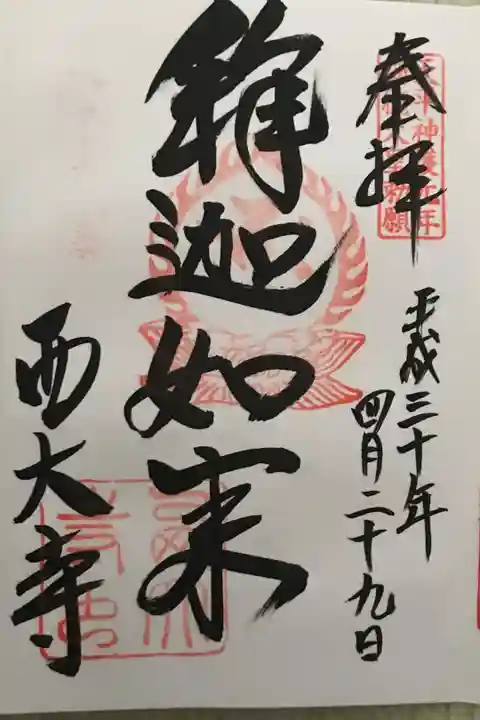 奉拝
天平神護元年
平成三十年
四月二十九日
釋迦如来
西大寺